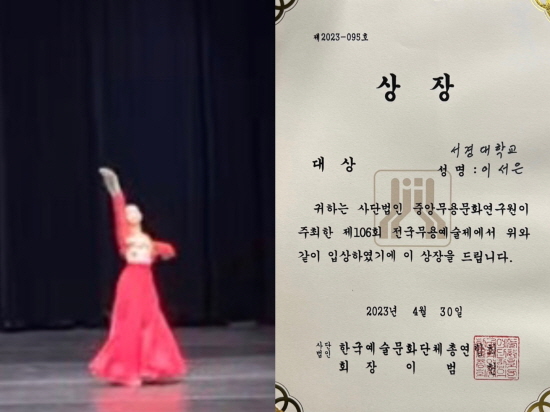 제2023-095호
상 장
서경대학교
대 상 성 명 : 이 서은
귀하는 사단법인 중앙무용문화연구원이
주최한 제106회 전국무용예술제에서 위와
같이 입상하였기에 이 상장을 드립니다.
2023년 4월 30일
사단법인 한국예술문화단체총연합회
회 장 이 범 헌